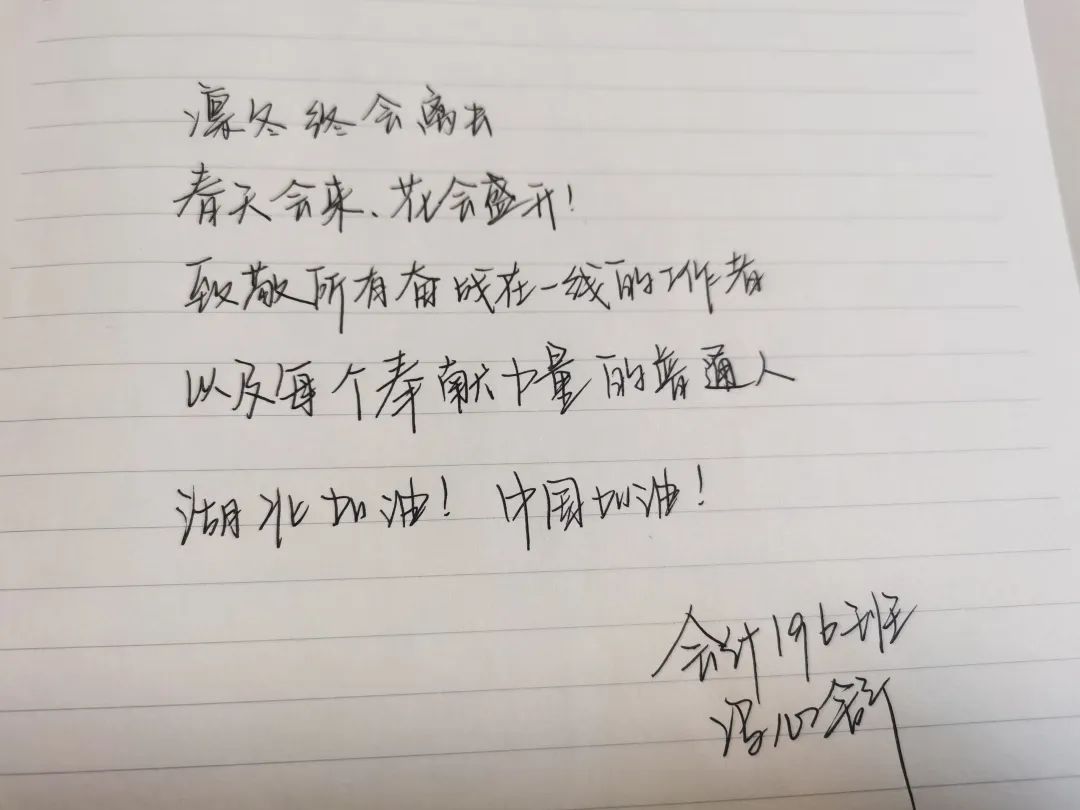 凛冬终会离去
春天会来、花会盛开!
致敬所有奋战在一线的工作者
以及每个奉献力量的普通人
湖北加油! 中国加油!
会计196班
冯心舒